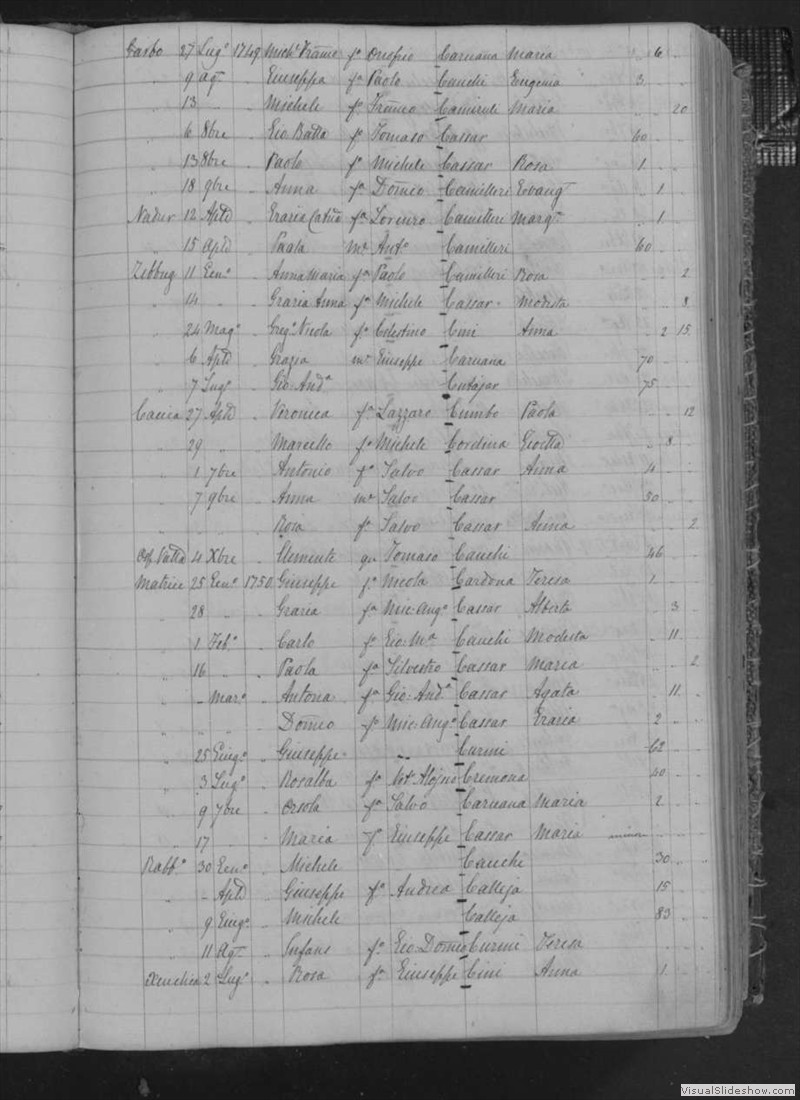 Garbo 27 Lug° 1749 Mich. Franc° f° Onofrio Caruana Maria 6
" 9 Ag° " Giuseppa fa Paolo Cauchi Eugenia 3
" 13 " Michele f° Franco Camilleri Maria 20
" 6 8bre " Gio Batta f° Tomaso Cassar 60
" 13 8bre " Paolo f° Michele Cassar Rosa 1
" 18 9bre " Anna fa Domco Camilleri Evang 1
Nadur 12 Aple " Grazia Catna fa Lorenzo Camilleri Marga 1
" 15 Aple " Paola me Anto Camilleri 60
Zebbug 11 Gen° " Anna Maria fa Paolo Camilleri Rosa 2
" 14 " Grazia Anna fa Michele Cassar Modesta 8
" 24 Mag° " Greg° Nicola f° Celestino Cini Anna 2 15
" 6 Aple " Grazia me Giuseppe Caruana 70
" 7 Lug° " Gio Anda Cutajar 75
Caccia 27 Aple " Veronica fa Lazzaro Cumbo Paola 12
" 29 " " Marcello f° Michele Cordina 8
" 1 7bre " Antonio f° Salvo Cassar Anna 4
" 7 9bre " Anna me Salvo Cassar 50
" " " Rosa fa Salvo Cassar Anna 2
4 Xbre " Clemente qm Tomaso Cauchi 46
Matrice 25 Gen° 1750 Giuseppe f° Nicola Cardona Teresa 1
" 28 " " Grazia fa Mic: Ang° Cassar Alberta 3
" 1 Feb° " Carlo f° Gio: Ma Cauchi Modesta 11
" 16 " " Paola fa Silvestro Cassar Maria 2
" - Mar° " Antonia fa Gio: Anda Cassar Agata 11
" " " Domco f° Mic: Ang° Cassar Grazia 2
" 25 Giug° " Giuseppe -- Curmi 62
" 3 Lug° " Rosalba fa Not Aloisio Cremona 40
" 9 7bre " Orsola fa Salvo Caruana Maria 2
" 17 " Maria fa Giuseppe Cassar Maria
Rabb° 30 Gen° " Michele Cauchi 30
" - Aple " Giuseppe f° Andrea Calleja 15
" 9 Giug° " Michele Calleja 83
" 11 Ag° " Infans f° Gio: Domco Curmi Teresa
Xeuchia 2 Lug° " Rosa fa Giuseppe Cini Anna 1
VisualSlideshow.com